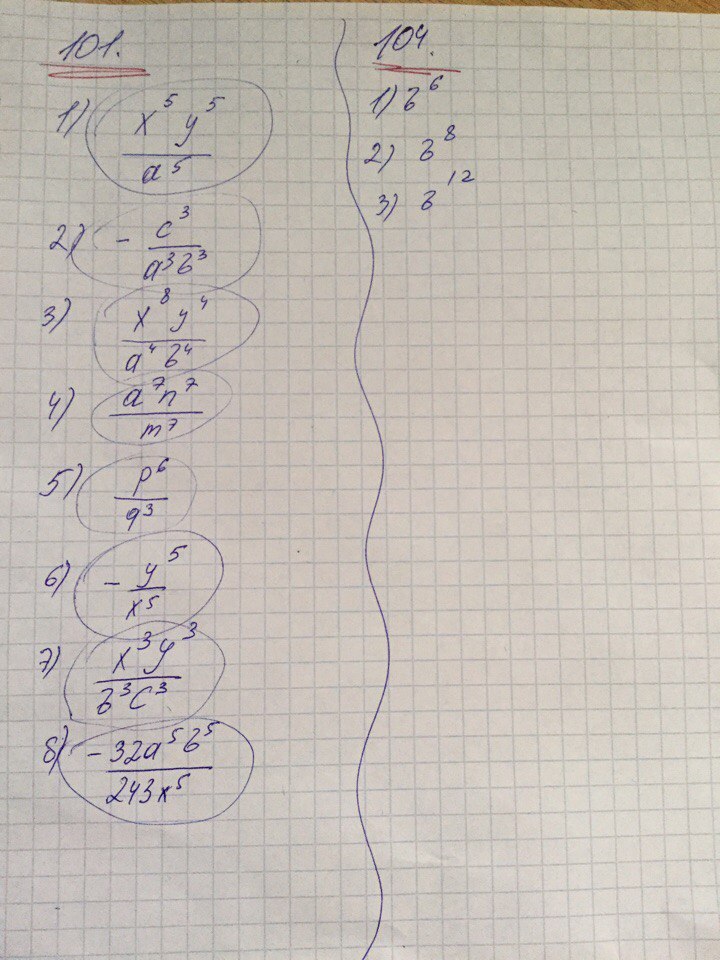 101.
1) x⁵y⁵/a⁵
2) - c³/a³b³
3) x⁸y⁴/a⁴b⁴
4) a⁷n⁷/m⁷
5) p⁶/q³
6) - y⁵/x⁵
7) x³y³/b³c³
8) - 32a⁵b⁵/243x⁵
104.
1) b⁶
2) b⁸
3) b¹²